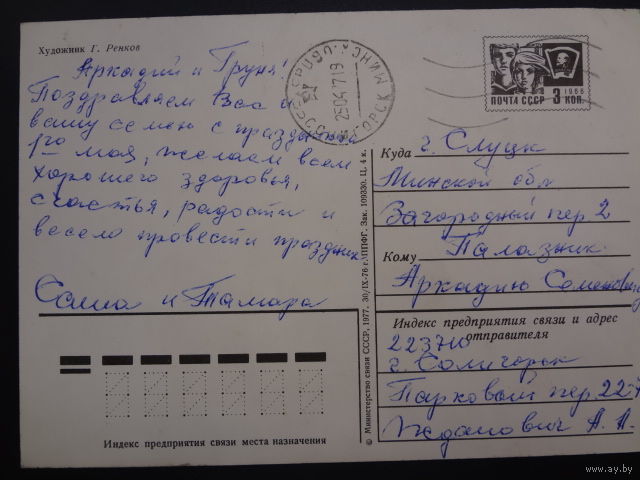 Художник Г. Ренков
Аркадий и Груня!
Поздравляем Вас и
вашу семью с праздником
1го мая, желаем всем
хорошего здоровья,
счастья, радости и
весело провести праздник
Саша и Тамара
Индекс предприятия связи места назначения
© Министерство связи СССР, 1977. 30/IX-76 г. МППФГ. Зак. 109330. Ц. 4 к.
ПОЧТА СССР 3 КОП.
1966
Куда г. Слуцк
Минской обл
Загородный пер 2
Кому Палазник
Аркадию Семеновичу
Индекс предприятия связи и адрес отправителя
223710
г. Солигорск
Парковый пер
Жданович А. А.
www.ay.by